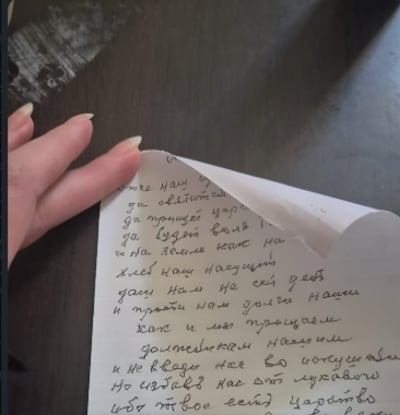 оже наш
да святится
да прищй царс
да будет воля
и на земле как на
хлеб наш насущий
дай нам на сей день
и прости нам долги наши
как и мы прощаем
должникам нашим
и не введи нас во искушени
но избавь нас от лукавого
ибо твое есть царство